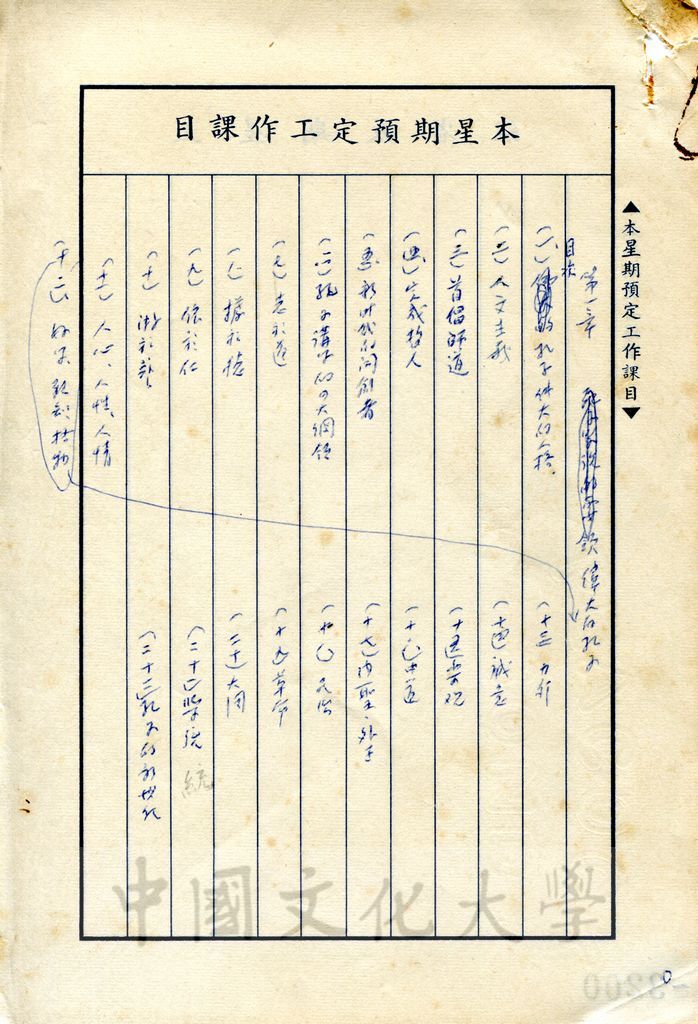 本星期預定工作課目
▲本星期預定工作課目▼
第一章 偉大的孔子
目次
(一) 孔子偉大的人格
(二) 人文主義
(三) 首倡師道
(四) 完成哲人
(五) 新時代的開創者
(六) 孔子講學的四大綱領
(七) 志於道
(八) 據於德
(九) 依於仁
(十) 游於藝
(十一) 人心、人性、人情
(十二) 好學 致知格物
(十三) 力行
(十四) 誠意
(十五)
(十六) 中道
(十七) 內聖、外王
(十八)
(十九) 革命
(二十) 大同
(二十一) 學統 統
(二十二) 孔子的新世紀
中國文化大學
0
-3200